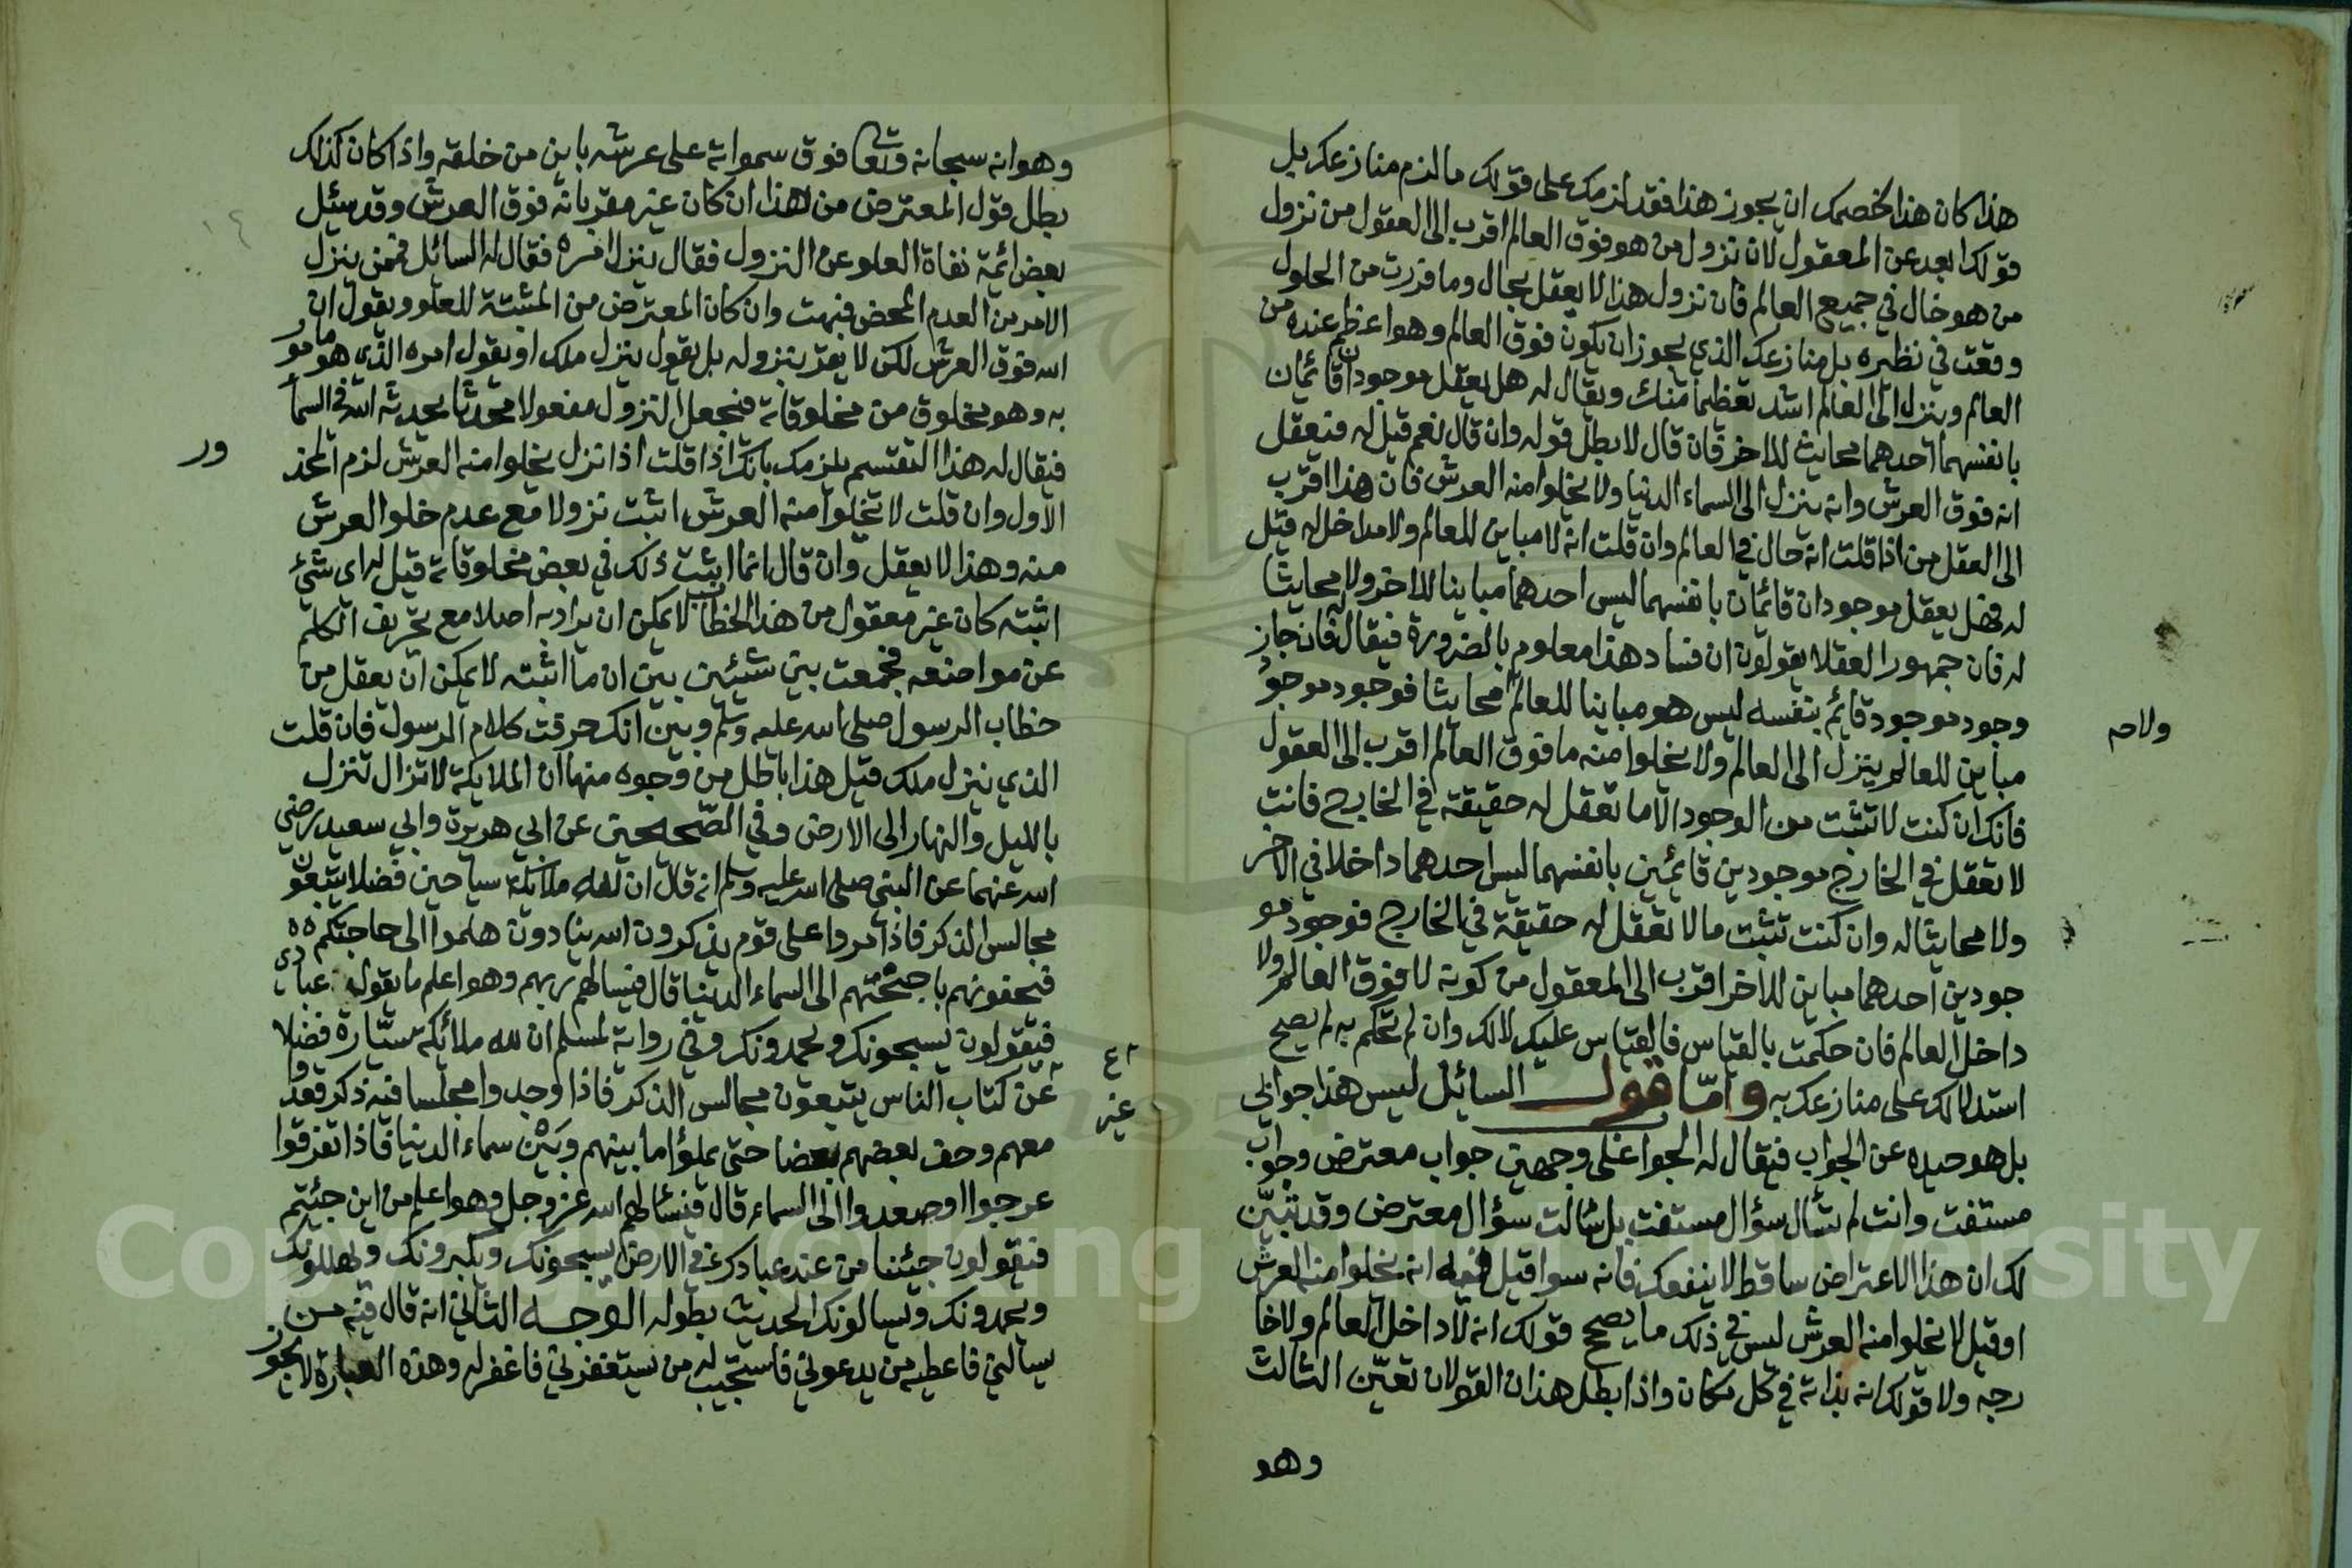 هذا كان هذا لخصمك ان يجوز هذا فقد لزمك على قولك ما لزم منازعك بل
قولك ابعد عن المعقول لان نزول من هو فوق العالم اقرب الى العقول من نزول
من هو حال في جميع العالم فان نزول هذا لا يعقل بحال وما فررت من الحلول
وقعت في نظيره بل منازعك الذي يجوز ان يكون فوق العالم وهو اعظم عنده من
العالم وينزل الى العالم اشد تعظيما منك ويقال له هل يعقل موجودان قائمان
بانفسهما احدهما محايث للاخر فان قال لا بطل قوله وان قال نعم قيل له فتعقل
انه فوق العرش وانه ينزل الى السماء الدنيا ولا يخلوا منه العرش فان هذا اقرب
الى العقل من اذا قلت انه حال في العالم وان قلت انه لا مباين للعالم ولا مداخل له قيل
له فهل يعقل موجودان قائمان بانفسهما ليس احدهما مباينا للاخر ولا محايثا
له فان جمهور العقلا يقولون ان فساد هذا معلوم بالضرورة فيقال له فان جاز
وجود موجود قائم بنفسه ليس هو مباينا للعالم محايثا فوجود موجود
ولا
مباين للعالم ينزل الى العالم ولا يخلوا منه ما فوق العالم اقرب الى العقول
فانك ان كنت لا تثبت من الوجود الا ما تعقل له حقيقة في الخارج فانت
لا تعقل في الخارج موجودين قائمين بانفسهما ليس احدهما داخلا في الاخر
ولا محايثا له وان كنت تثبت ما لا تعقل له حقيقة في الخارج فوجود مو
جودين احدهما مباين للاخر اقرب الى المعقول من كونه لا فوق العالم ولا
داخل العالم فان حكمت بالقياس فالقياس عليك لا لك وان لم تحكم به لم يصح
استدلالك على منازعك به واما قول السائل ليس هذا جوابي
بل هو حيده عن الجواب فيقال له الجواب على وجهين جواب معترض وجواب
مستفت وانت لم تسأل سؤال مستفت بل سألت سؤال معترض وقد تبين
لك ان هذا الاعتراض ساقط لا ينفعك فانه سوا قيل فيه انه يخلوا منه العرش
او قيل لا يخلوا منه العرش ليس في ذلك ما يصحح قولك انه لا داخل العالم ولا خا
رجه ولا قولك انه بذاته في كل مكان واذا بطل هذان القولان تعين الثالث
وهو
وهو انه سبحانه وتعا فوق سمواته على عرشه باين من خلقه واذا كان كذلك
بطل قول المعترض من هذا ان كان غير مقر بانه فوق العرش وقد سئل
بعض ائمة نفاة العلو عن النزول فقال ينزل امره فقال له السائل فممن ينزل
الامر من العدم المحض فبهت وان كان المعترض من المثبتة للعلو ويقول ان
الله فوق العرش لكن لا يقر بنزوله بل يقول ينزل ملك او يقول امره الذي هو مامور
به وهو مخلوق من مخلوقاته فنجعل النزول مفعولا محدثا يحدثه الله في السما
فيقال له هذا التقسيم يلزمك بانك اذا قلت اذا نزل يخلوا منه العرش لزم المحذ
ور
الاول وان قلت لا يخلوا منه العرش اثبت نزولا مع عدم خلو العرش
منه وهذا لا يعقل وان قال انما اثبت ذلك في بعض مخلوقاته قيل له اي شيئ
اثبته كان غير معقول من هذا الخطاب لا يمكن ان يراد به اصلا مع تحريف الكلم
عن مواضعه فجمعت بين شيئين بين ان ما اثبته لا يمكن ان يعقل من
خطاب الرسول صلى الله عليه وسلم وبين انك حرفت كلام الرسول فان قلت
الذي ينزل ملك قيل هذا باطل من وجوه منها ان الملايكة لا تزال تنزل
بالليل والنهار الى الارض وفي الصحيحين عن ابي هريرة وابي سعيد رضي
الله عنهما عن النبي صلى الله عليه وسلم انه قال ان لله ملائكة سياحين فضلا يتبعون
مجالس الذكر فاذا مروا على قوم يذكرون الله ينادون هلموا الى حاجتكم
فيحفونهم باجنحتهم الى السماء الدنيا قال فيسالهم ربهم وهو اعلم ما يقوله عبادي
فيقولون يسبحونك ويحمدونك وفي رواية لمسلم ان لله ملائكة سيارة فضلا
عن كتاب الناس يتبعون مجالس الذكر فاذا وجدوا مجلسا فيه ذكر قعدوا
معهم وحف بعضهم بعضا حتى يملؤا ما بينهم وبين سماء الدنيا فاذا تفرقوا
عرجوا او صعدوا الى السماء قال فيسألهم الله عز وجل وهو اعلم من اين جئتم
فيقولون جئنا من عند عبادك في الارض يسبحونك ويكبرونك ويهللونك
ويحمدونك ويسالونك الحديث بطوله الوجه الثاني انه قال فيه من
يسالني فاعطيه من يدعوني فاستجيب له من يستغفرني فاغفر له وهذه العبارة لا يجوز